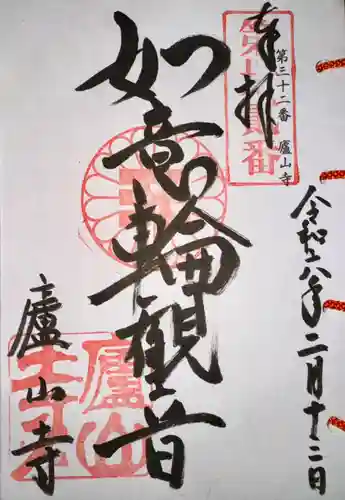 奉拝
第三十二番 廬山寺
令和八年二月十二日
如意輪観音
廬山寺